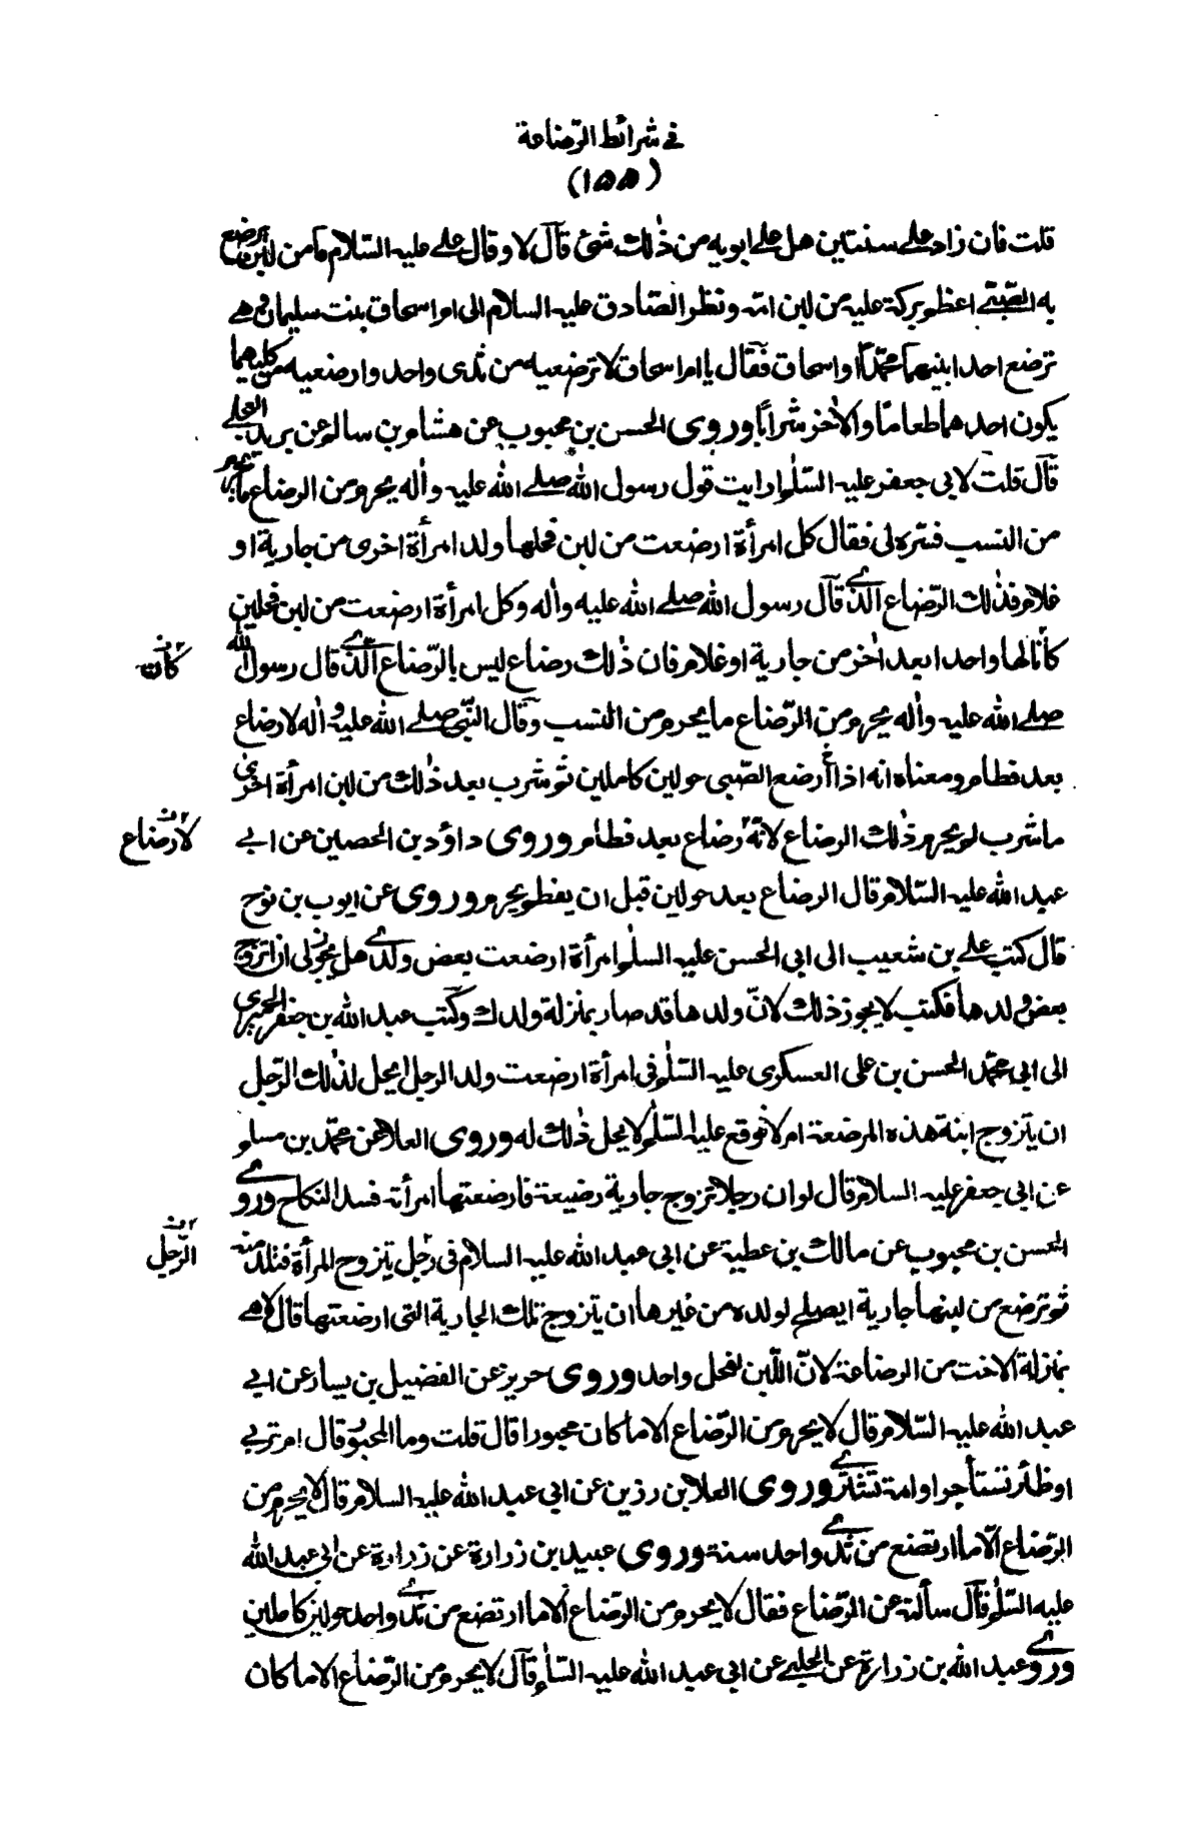 في شرائط الرّضاعة
(١٥٥)
قلت فان زاد على سنتين هل على ابويه من ذٰلك شئ قآل لا وقال على عليه السّلام ما من لبن رضع
به الصّبى اعظم بركة عليه من لبن امّه ونظر الصّادق عليه السلام الى ام اسحاق بنت سليمان وهى
ترضع احد ابنيها محمّدًا او اسحاق فقآل يا ام اسحاق لا ترضعيه من ثدى واحد وارضعيه من كليهما
يكون احدهما طعامًا والاٰخر شرابًا وروى الحسن بن محبوب عن هشام بن سالم عن بريد العجلى
قآل قلت لابى جعفر عليه السّلٰم ارايت قول رسول الله صلى الله عليه واٰله يحرم من الرضاع ما يحرم
من النسب فسّره لى فقال كل امرأة ارضعت من لبن فحلها ولد امرأة اخرى من جارية او
غلام فذٰلك الرّضاع الّذى قآل رسول الله صلى الله عليه واٰله وكل امرأة ارضعت من لبن فحلين
كانا لها واحدا بعد اٰخر من جارية او غلام فان ذٰلك رضاع ليس بالرّضاع الّذى قال رسول الله
كان
صلى الله عليه واٰله يحرم من الرّضاع ما يحرم من النسب وقآل النّبى صلى الله عليه واٰله لا رضاع
بعد فطام ومعناه انه اذا أرضع الصّبى حولين كاملين ثم شرب بعد ذٰلك من لبن امرأة اخرى
ما شرب لم يحرم ذٰلك الرضاع لانّه رضاع بعد فطام وروى داؤد بن الحصين عن ابى
لا رضاع
عبد الله عليه السّلام قال الرضاع بعد حولين قبل ان يفطم يحرم وروى عن ايوب بن نوح
قال كتب على بن شعيب الى ابى الحسن عليه السلٰم امرأة ارضعت بعض ولدى هل يجوز لى ان اتزوج
بعض ولدها فكتب لا يجوز ذلك لانّ ولدها قد صار بمنزلة ولدك وكتب عبد الله بن جعفر الحميرى
الى ابى محمّد الحسن بن على العسكرى عليه السّلٰم فى امرأة ارضعت ولد الرجل ايحل لذٰلك الرّجل
ان يتزوج ابنة هذه المرضعة ام لا فوقع عليه السّلٰم لا يحل ذٰلك له وروى العلا عن محمّد بن مسلم
عن ابى جعفر عليه السلام قال لو ان رجلا تزوج جارية رضيعة فارضعتها امرأته فسد النكاح وروى
الحسن بن محبوب عن مالك بن عطية عن ابى عبد الله عليه السلام فى رجل يتزوج المرأة فتلد منه
الرّجل
ثم ترضع من لبنها جارية ايصلح لولده من غيرها ان يتزوج تلك الجارية التى ارضعتها قال لا هى
بمنزلة الاخت من الرضاعة لانّ اللّبن لفحل واحد وروى حريز عن الفضيل بن يسار عن ابى
عبد الله عليه السّلام قال لا يحرم من الرّضاع الا ما كان مجبورا قال قلت وما المجبور قال ام تربى
او ظئر تستأجر او امة تشترى وروى العلا بن رزين عن ابى عبد الله عليه السلام قال لا يحرم من
الرّضاع الّا ما ارتضع من ثدى واحد سنة وروى عبيد بن زرارة عن زرارة عن ابى عبد الله
عليه السّلٰم قآل سألته عن الرّضاع فقال لا يحرم من الرضاع الا ما ارتضع من ثدى واحد حولين كاملين
وروى عبد الله بن زرارة عن الحلبى عن ابى عبد الله عليه السّلٰم قآل لا يحرم من الرّضاع الا ما كان